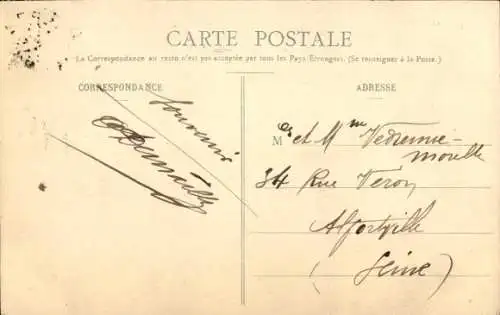 CARTE POSTALE
La Correspondance au recto n'est pas acceptée par tous les Pays Étrangers. (Se renseigner à la Poste.)
CORRESPONDANCE
Souvenir
ADRESSE
Mer et Mme Vedrenne-
morelle
34 Rue Veron
Alfortville
(Seine)